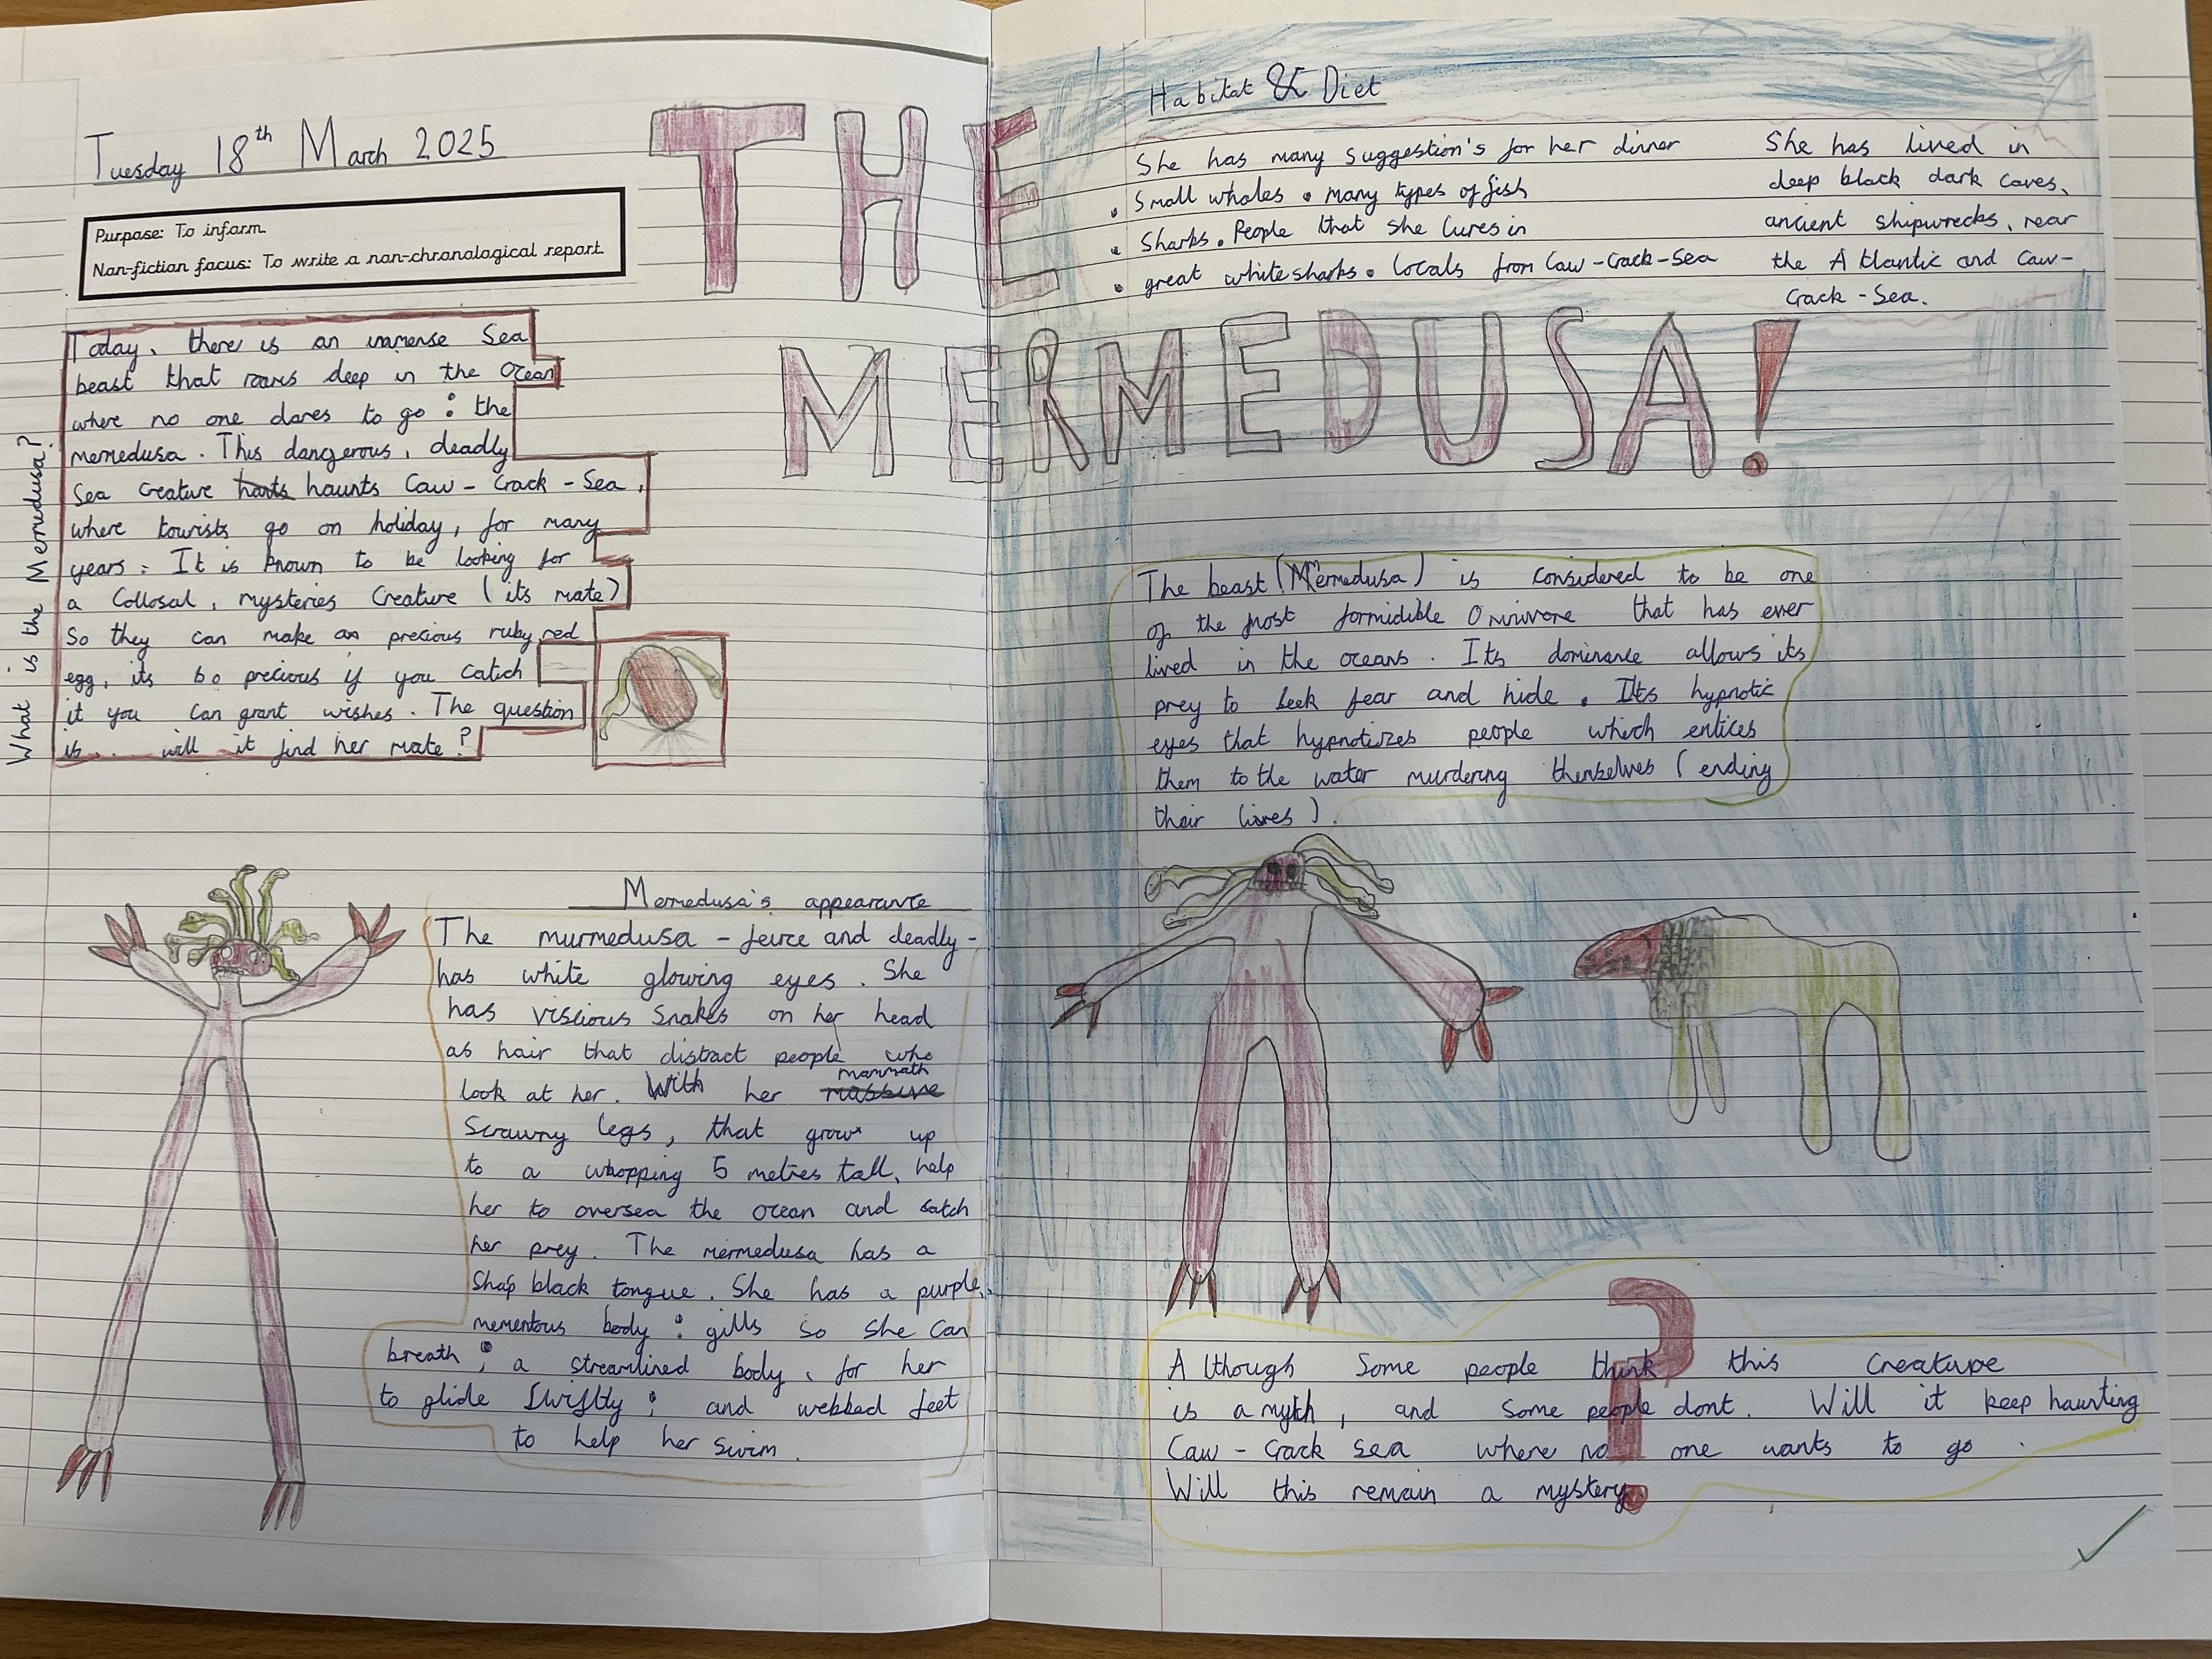 Tuesday 18th March 2025
Purpose: To inform.
Non-fiction focus: To write a non-chronological report.
THE
MERMEDUSA!
What is the Mermedusa?
Today, there is an immense Sea
beast that roams deep in the Ocean
where no one dares to go : the
mermedusa. This dangerous, deadly
Sea creature harts haunts Caw - Crack - Sea,
where tourists go on holiday, for many
years. It is known to be looking for
a Collosal, mysteries Creature (its mate)
So they can make a precious ruby red
egg, its so precious if you catch
it you can grant wishes. The question
is... will it find her mate?
Mermedusa's appearance
The murmedusa - feirce and deadly -
has white glowing eyes. She
has viscious Snakes on her head
as hair that distract people who
look at her. With her massive mammath
Scrawny legs, that grow up
to a whopping 5 metres tall, help
her to oversea the ocean and catch
her prey. The mermedusa has a
Shap black tongue. She has a purple,
mementous body : gills so she can
breath ; a streamlined body, for her
to glide Swiftly ; and webbed feet
to help her swim.
Habitat & Diet
She has many suggestion's for her dinner
• Small whales • many types of fish
• Sharks • People that she lures in
• great white sharks • locals from Caw-Crack-Sea
She has lived in
deep black dark caves,
ancient shipwrecks, near
the Atlantic and Caw-
Crack - Sea.
The beast (Mermedusa) is considered to be one
of the most formidible Omnivore that has ever
lived in the oceans. Its dominance allows its
prey to seek fear and hide. Its hypnotic
eyes that hypnotizes people which entices
them to the water murdering themselves (ending
their lives).
Although Some people think this creature
is a myth, and some people dont. Will it keep haunting
Caw - Crack sea where no one wants to go.
Will this remain a mystery?